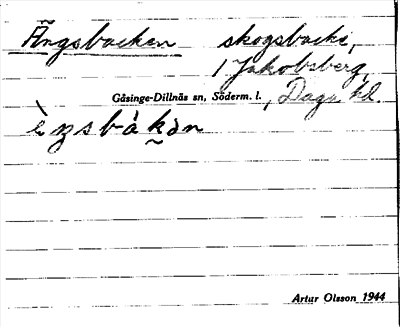 Ängsbacken skogsbacke,
1 Jakobsberg,
Gåsinge-Dillnäs sn, Söderm. l., Daga hd.
è̀ŋsbàkən
Artur Olsson 1944